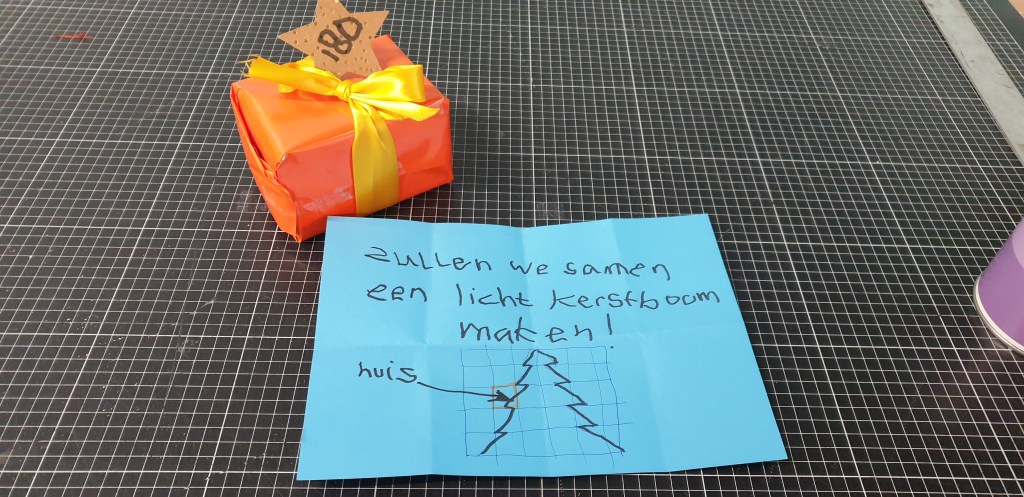 180
zullen we samen
een licht kerstboom
maken!
huis